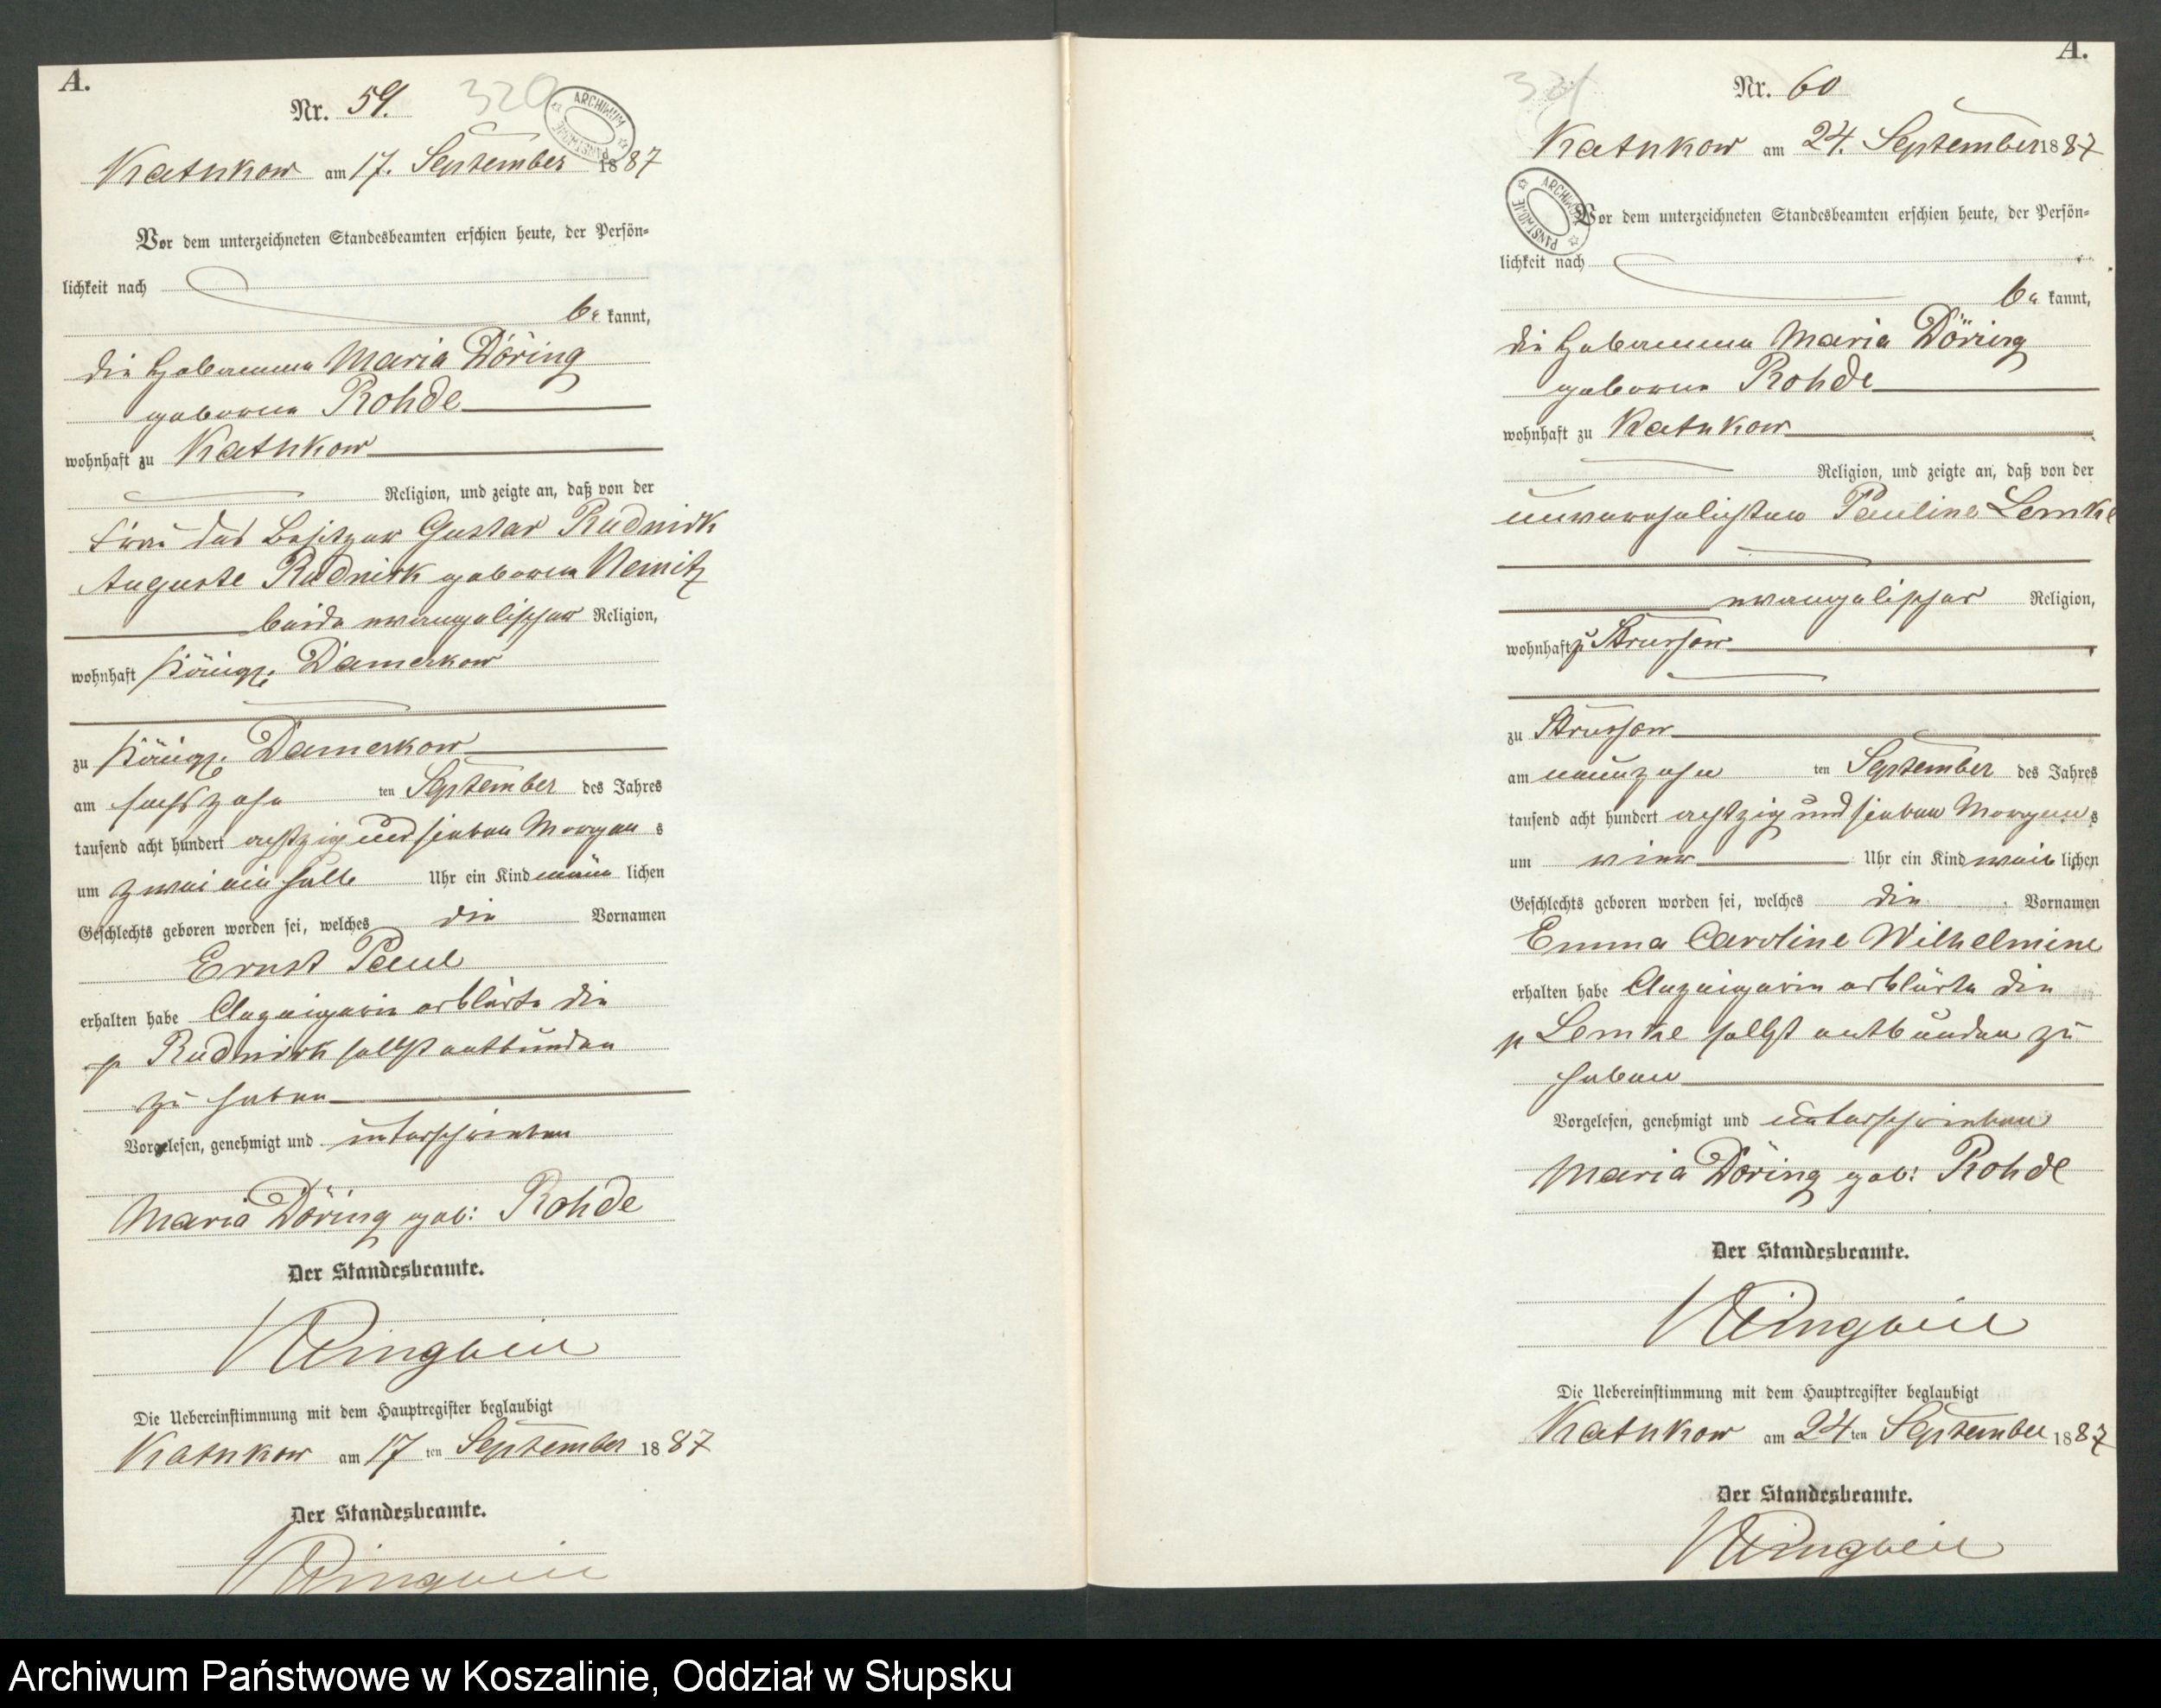 A.
Nr. 59.
320
ARCHIWUM PAŃSTWOWE
Kathkow am 17. September 1887
Vor dem unterzeichneten Standesbeamten erschien heute, der Persön-
lichkeit nach
be kannt,
die Hebamme Maria Döring
geborene Rohde
wohnhaft zu Kathkow
Religion, und zeigte an, daß von der
Frau des Besitzer Gustav Rudnick
Auguste Rudnick geborene Nemitz
beide evangelischer Religion,
wohnhaft Königl. Damerkow
zu Königl. Damerkow
am sechszehn ten September des Jahres
tausend acht hundert achtzig und sieben Morgen s
um zwei ein halb Uhr ein Kind männ lichen
Geschlechts geboren worden sei, welches die Vornamen
Ernst Paul
erhalten habe Anzeigerin erklärte die
p Rudnick selbst entbunden
zu haben
Vorgelesen, genehmigt und unterschrieben
Maria Döring geb: Rohde
Der Standesbeamte.
Die Uebereinstimmung mit dem Hauptregister beglaubigt
Kathkow am 17 ten September 1887
Der Standesbeamte.
A.
Nr. 60
321
ARCHIWUM PAŃSTWOWE
Kathkow am 24. September 1887
Vor dem unterzeichneten Standesbeamten erschien heute, der Persön-
lichkeit nach
be kannt,
die Hebamme Maria Döring
geborene Rohde
wohnhaft zu Kathkow
Religion, und zeigte an, daß von der
unverehelichten Pauline Lemke
evangelischer Religion,
wohnhaft zu Strussow
zu Strussow
am neunzehn ten September des Jahres
tausend acht hundert achtzig und sieben Morgens
um vier Uhr ein Kind weib lichen
Geschlechts geboren worden sei, welches die Vornamen
Emma Caroline Wilhelmine
erhalten habe Anzeigerin erklärte die
p Lemke selbst entbunden zu
haben
Vorgelesen, genehmigt und unterschrieben
Maria Döring geb: Rohde
Der Standesbeamte.
Die Uebereinstimmung mit dem Hauptregister beglaubigt
Kathkow am 24 ten September 1887
Der Standesbeamte.
Archiwum Państwowe w Koszalinie, Oddział w Słupsku